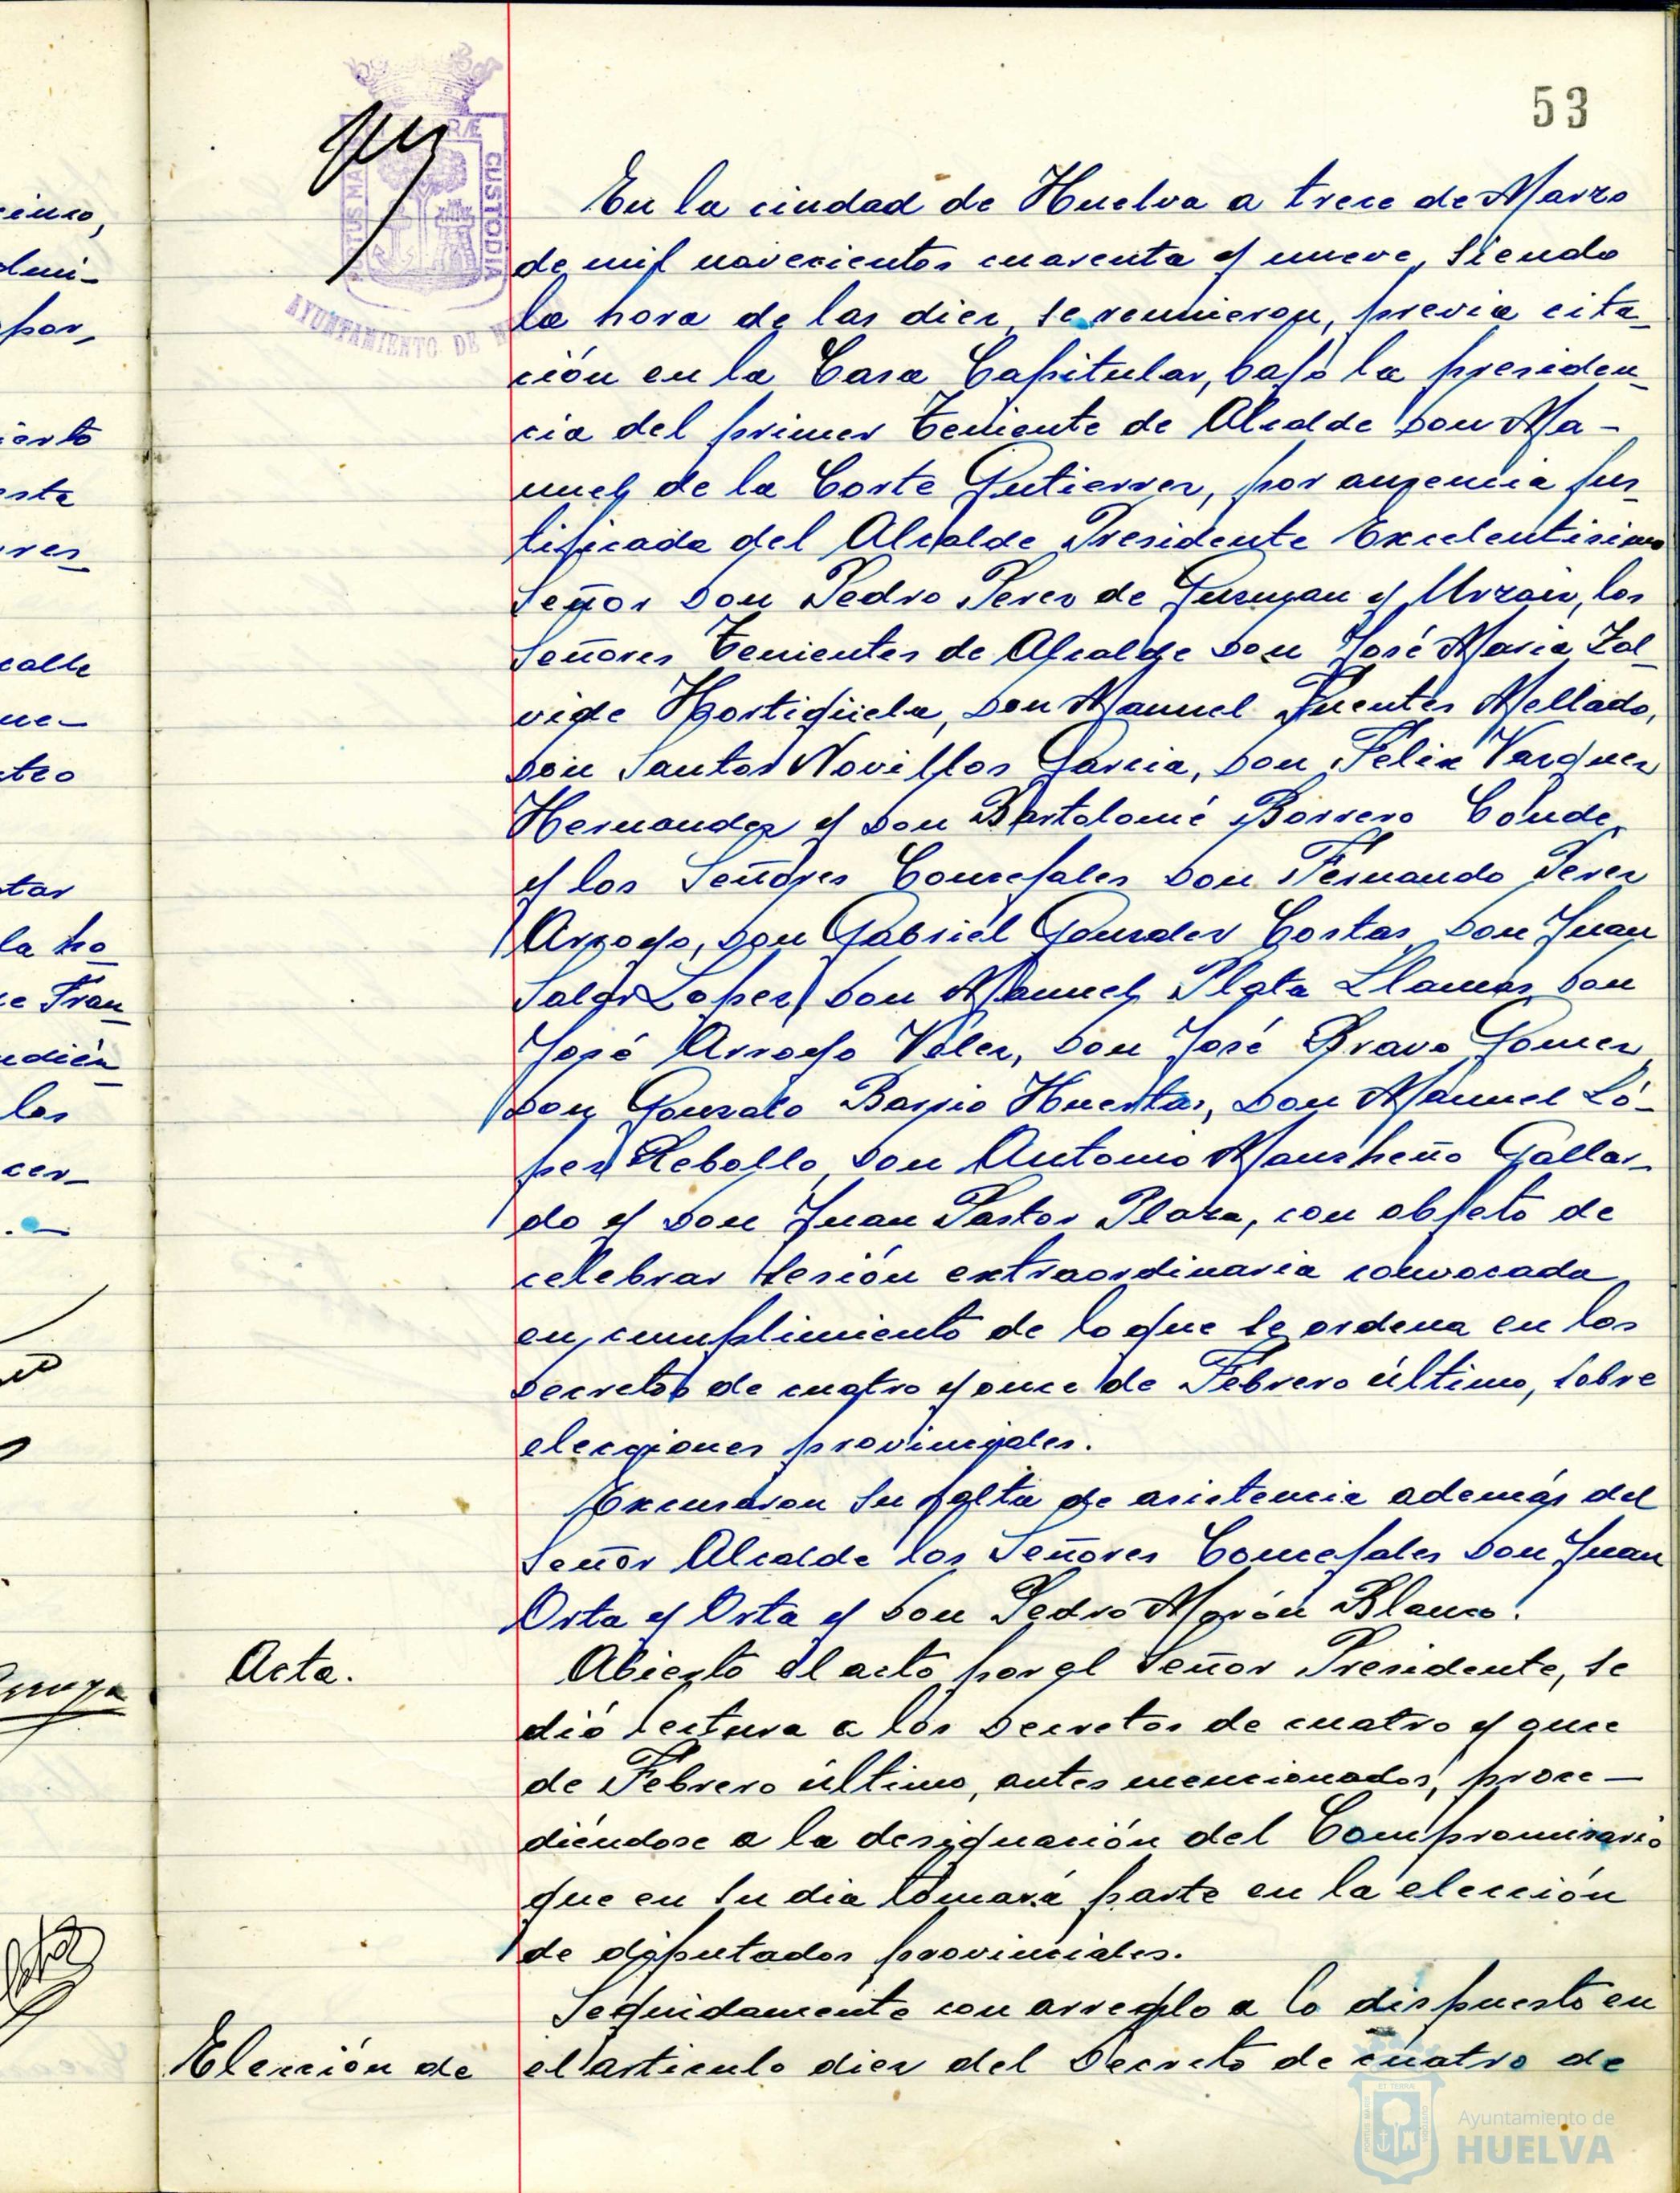 53
PORTUS MARIS ET TERRÆ CUSTODIA
AYUNTAMIENTO DE
En la ciudad de Huelva a trece de Marzo
de mil novecientos cuarenta y nueve, siendo
la hora de las diez, se reunieron, previa cita-
ción en la Casa Capitular, bajo la presiden-
cia del primer Teniente de Alcalde Don Ma-
nuel de la Corte Gutierrez, por ausencia jus-
tificada del Alcalde Presidente Excelentisimo
Señor Don Pedro Perez de Guzman y Urzaiz, los
Señores Tenientes de Alcalde Don José Maria Zal-
vide Hortigüela, Don Manuel Fuentes Mellado,
Don Santos Novillos Garcia, Don Felix Vazquez
Hernandez y Don Bartolomé Borrero Conde,
y los Señores Concejales Don Fernando Perez
Arroyo, Don Gabriel Gonzalez Costas, Don Juan
Salas Lopez, Don Manuel Plata Llamas, Don
José Arroyo Vélez, Don José Bravo Gomez,
Don Gonzalo Barrio Huertas, Don Manuel Ló-
pez Rebollo, Don Antonio Mancheño Gallar-
do y Don Juan Pastor Plaza, con objeto de
celebrar sesión extraordinaria convocada
en cumplimiento de lo que se ordena en los
Decretos de cuatro y once de Febrero último, sobre
elecciones provinciales.
Excusaron su falta de asistencia además del
Señor Alcalde los Señores Concejales Don Juan
Orta y Orta y Don Pedro Morón Blanco.
Acta.
Abierto el acto por el Señor Presidente, se
dió lectura a los Decretos de cuatro y once
de Febrero último, antes mencionados, proce-
diéndose a la designación del Compromisario
que en su dia tomará parte en la elección
de diputados provinciales.
Seguidamente con arreglo a lo dispuesto en
Elección de
el articulo diez del Decreto de cuatro de
cinco,
por,
ierto
esta
calle
ne-
tar
la ho
Fran
los
cer-
Ayuntamiento de
HUELVA